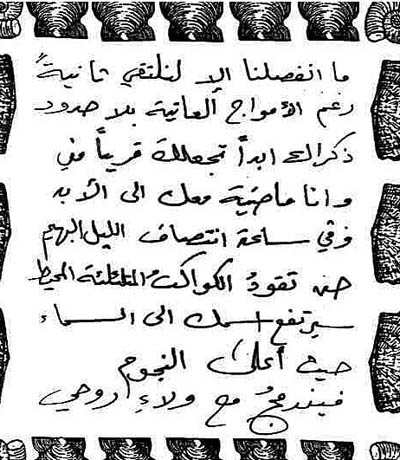 ما انفصلنا الا لنلتقي ثانيةً
رغم الأمواج العاتية بلا حدود
ذكراك ابداً تجعلك قريباً مني
وانا ماضية معك الى الأبد
وفي ساعة انتصاف الليل البهيم
حين تقودُ الكواكبُ المتلألئة المحيط
سيرتفع اسمك الى السماء
حيث أعلى النجوم
فيندمجُ مع ولاءِ روحي